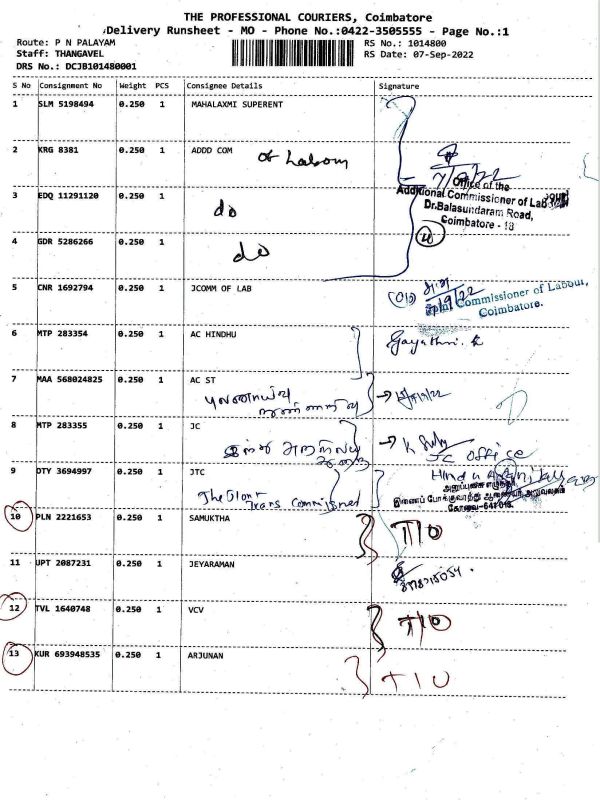 THE PROFESSIONAL COURIERS, Coimbatore
Delivery Runsheet - MO - Phone No.:0422-3505555 - Page No.:1
Route: P N PALAYAM RS No.: 1014800
Staff: THANGAVEL RS Date: 07-Sep-2022
DRS No.: DCJB101480001
S No Consignment No Weight PCS Consignee Details Signature
1 SLM 5198494 0.250 1 MAHALAXMI SUPERENT
2 KRG 8381 0.250 1 ADDD COM of Labour
7/9/22
Office of the
Additional Commissioner of Labour
Dr.Balasundaram Road,
Coimbatore - 18
3 EDQ 11291120 0.250 1 do
4 GDR 5286266 0.250 1 do
5 CNR 1692794 0.250 1 JCOMM OF LAB
Commissioner of Labour,
Coimbatore.
6 MTP 283354 0.250 1 AC HINDHU Gayathri. K
7 MAA 568024825 0.250 1 AC ST
8 MTP 283355 0.250 1 JC
JC office
9 OTY 3694997 0.250 1 JTC Hindu
The Joint
Trans Commissioner
இணைப் போக்குவரத்து ஆணையர் அலுவலகம்
கோவை-641018.
10 PLN 2221653 0.250 1 SAMUKTHA T/O
11 UPT 2087231 0.250 1 JEYARAMAN
12 TVL 1640748 0.250 1 VCV T/O
13 KUR 693948535 0.250 1 ARJUNAN T/O